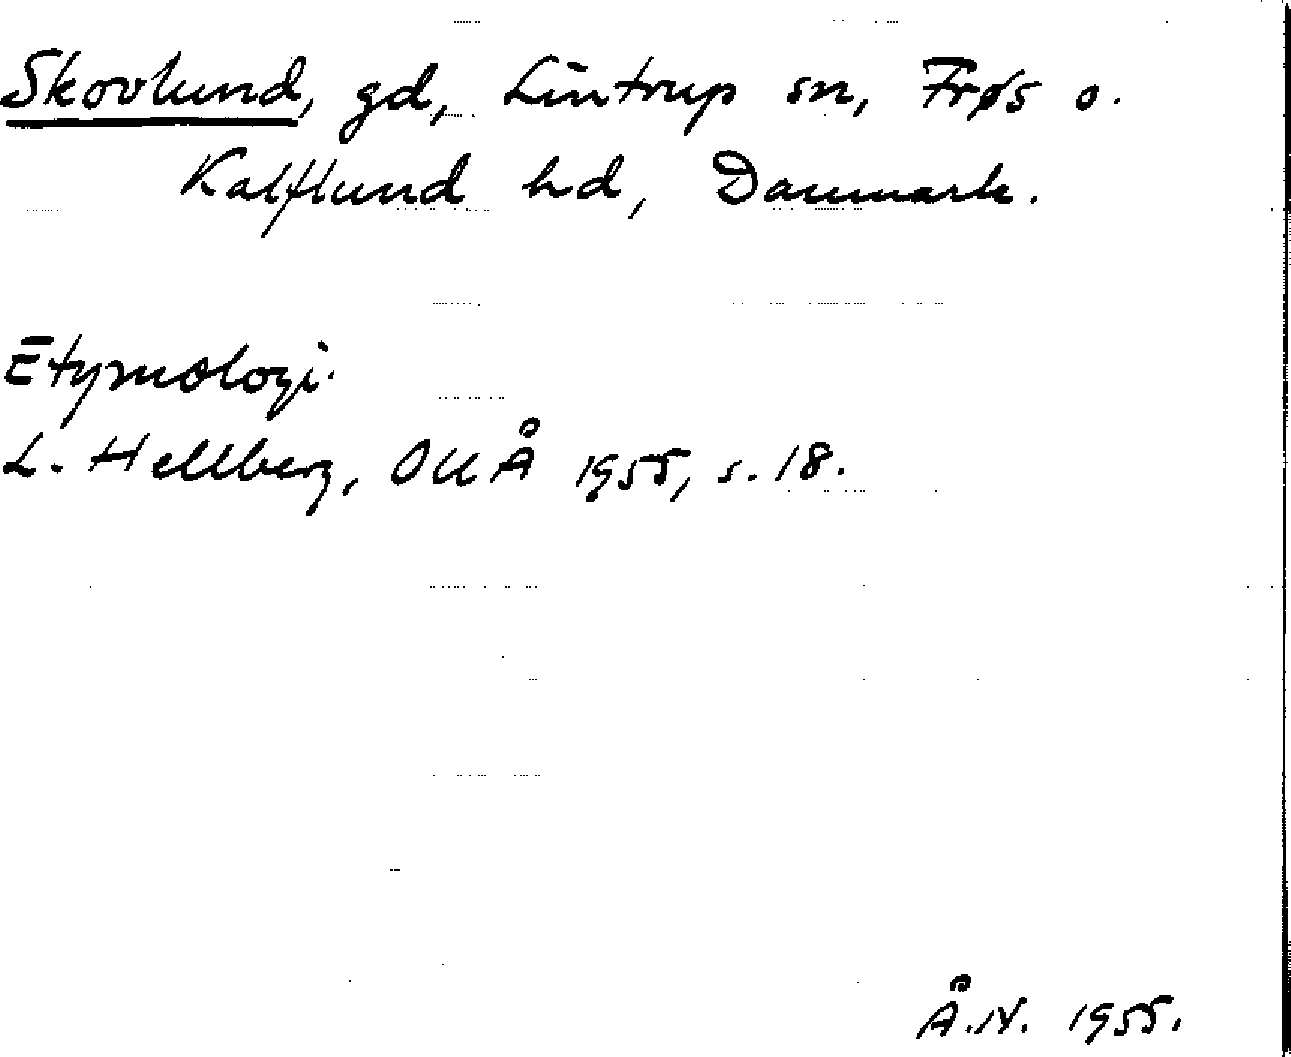 Skovlund, gd, Lintrup sn, Frøs o.
Kalflund hd, Danmark.
Etymologi.
L. Hellberg, OUÅ 1955, s. 18.
Å.N. 1955.